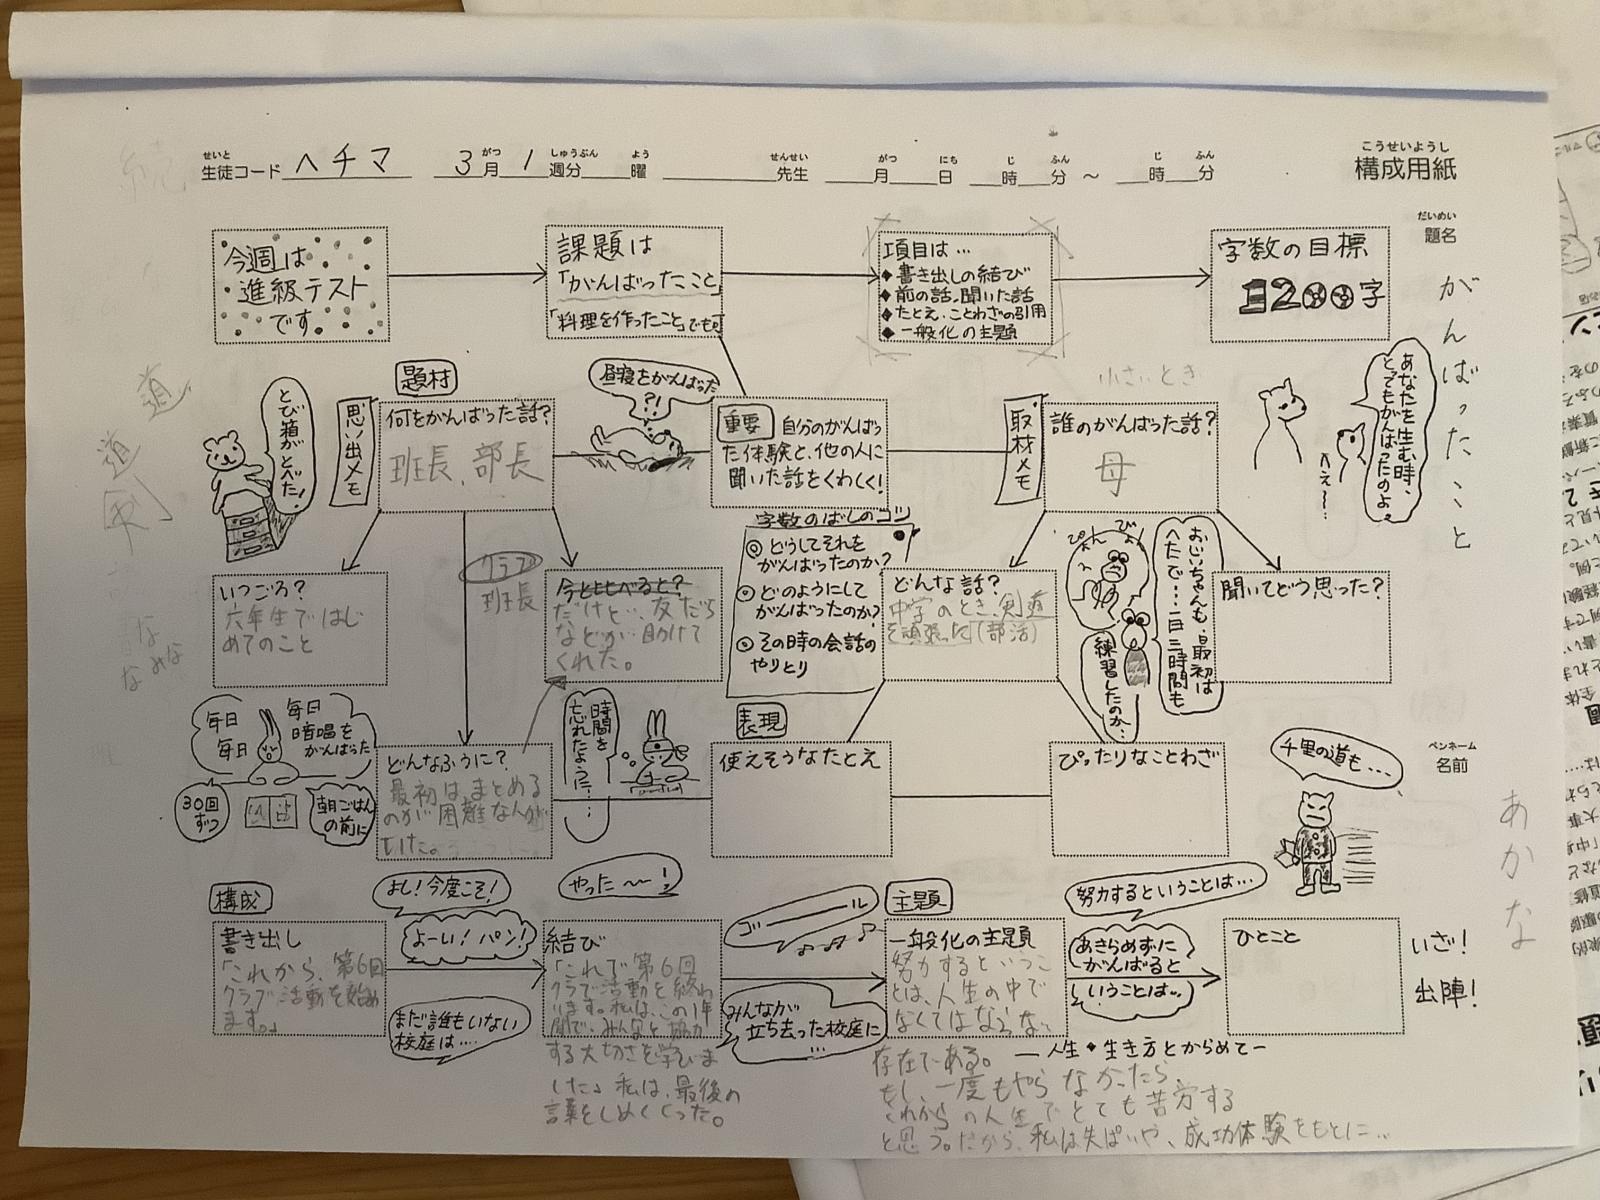 せいと がつ しゅうぶん よう せんせい がつ にち じ ふん じ ふん こうせいようし
生徒コード ヘチマ 3月 1週分 曜 先生 月 日 時 分 ～ 時 分 構成用紙
だいめい
題名
がんばったこと
今週は
進級テスト
です。
課題は
「がんばったこと」
「料理を作ったこと」でも可
項目は…
◆書き出しの結び
◆前の話、聞いた話
◆たとえ、ことわざの引用
◆一般化の主題
字数の目標
1200字
題材
思い出メモ
何をがんばった話？
班長、部長
とび箱がとべた！
昼寝をがんばった
?!
重要 自分のがんばっ
た体験と、他の人に
聞いた話をくわしく！
取材メモ
小さいとき
誰のがんばった話？
母
あなたを生む時、
とてもがんばったのよ。
へえ～…
道
道
いつごろ？
六年生ではじ
めてのこと
クラブ
班長
今とくらべると？
だけど…、友だち
などが助けて
くれた。
字数のばしのコツ
◎どうしてそれを
がんばったのか？
◎どのようにして
がんばったのか？
◎その時の会話の
やりとり
どんな話？
中学のとき、剣道
を頑張った（部活）
ぴょん ぴょん
おじいちゃんも、最初は
へたで…一日三時間も
練習したのか…
聞いてどう思った？
毎日
毎日
毎日
暗唱を
がんばった
30回
ずつ
朝ごはん
の前に
どんなふうに？
最初は、まとめる
のが困難な人が
いた。
時間を
忘れたように……
表現
使えそうなたとえ
ぴったりなことわざ
千里の道も…
ペンネーム
名前
あかな
構成
書き出し
「これから、第6回
クラブ活動を始め
ます。」
よし！今度こそ！
よーい！パン！
まだ誰もいない
校庭は……
やった～～！
結び
「これで第6回
クラブ活動を終わ
います。私は、この1年
間で、みんなと協力
する大切さを学びま
した」私は、最後の
言葉をしめくくった。
ゴーーール
みんなが
立ち去った校庭に
…
主題
一般化の主題
努力するというこ
とは、人生の中で
なくてはならない
存在である。
もし、一度もやらなかったら、
これからの人生でとても苦労する
と思う。だから、私は失ぱいや、成功体験をもとに…
努力するということは…
あきらめずに
がんばると
いうことは…
ー人生・生き方とからめてー
ひとこと
いざ！
出陣！